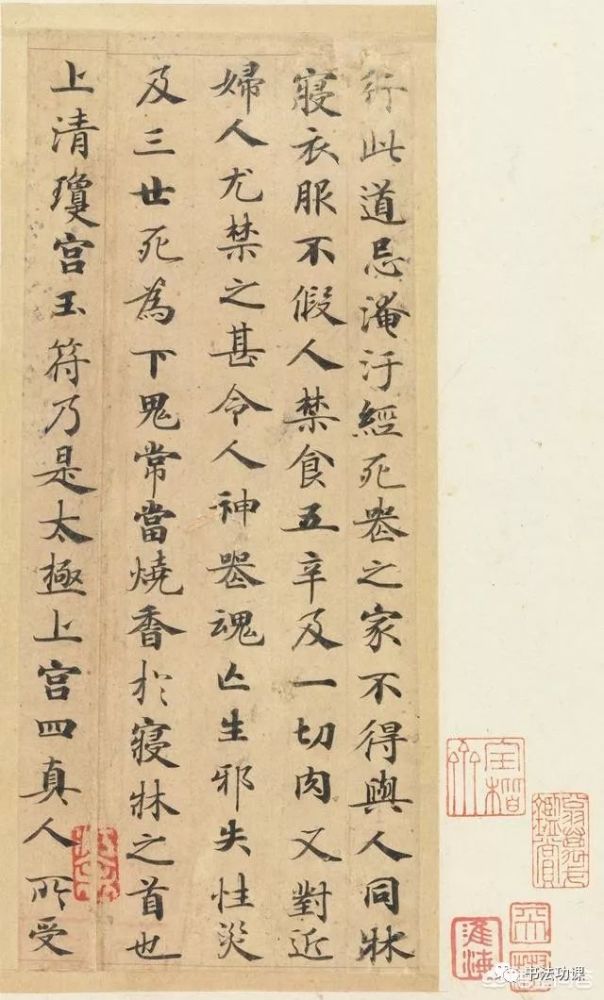 行此道忌淹汙經死喪之家不得與人同牀
寢衣服不假人禁食五辛及一切肉又對近
婦人尤禁之甚令人神喪魂亡生邪失性災
及三世死為下鬼常當燒香於寢牀之首也
上清瓊宮玉符乃是太極上宮四真人所受
书法功课